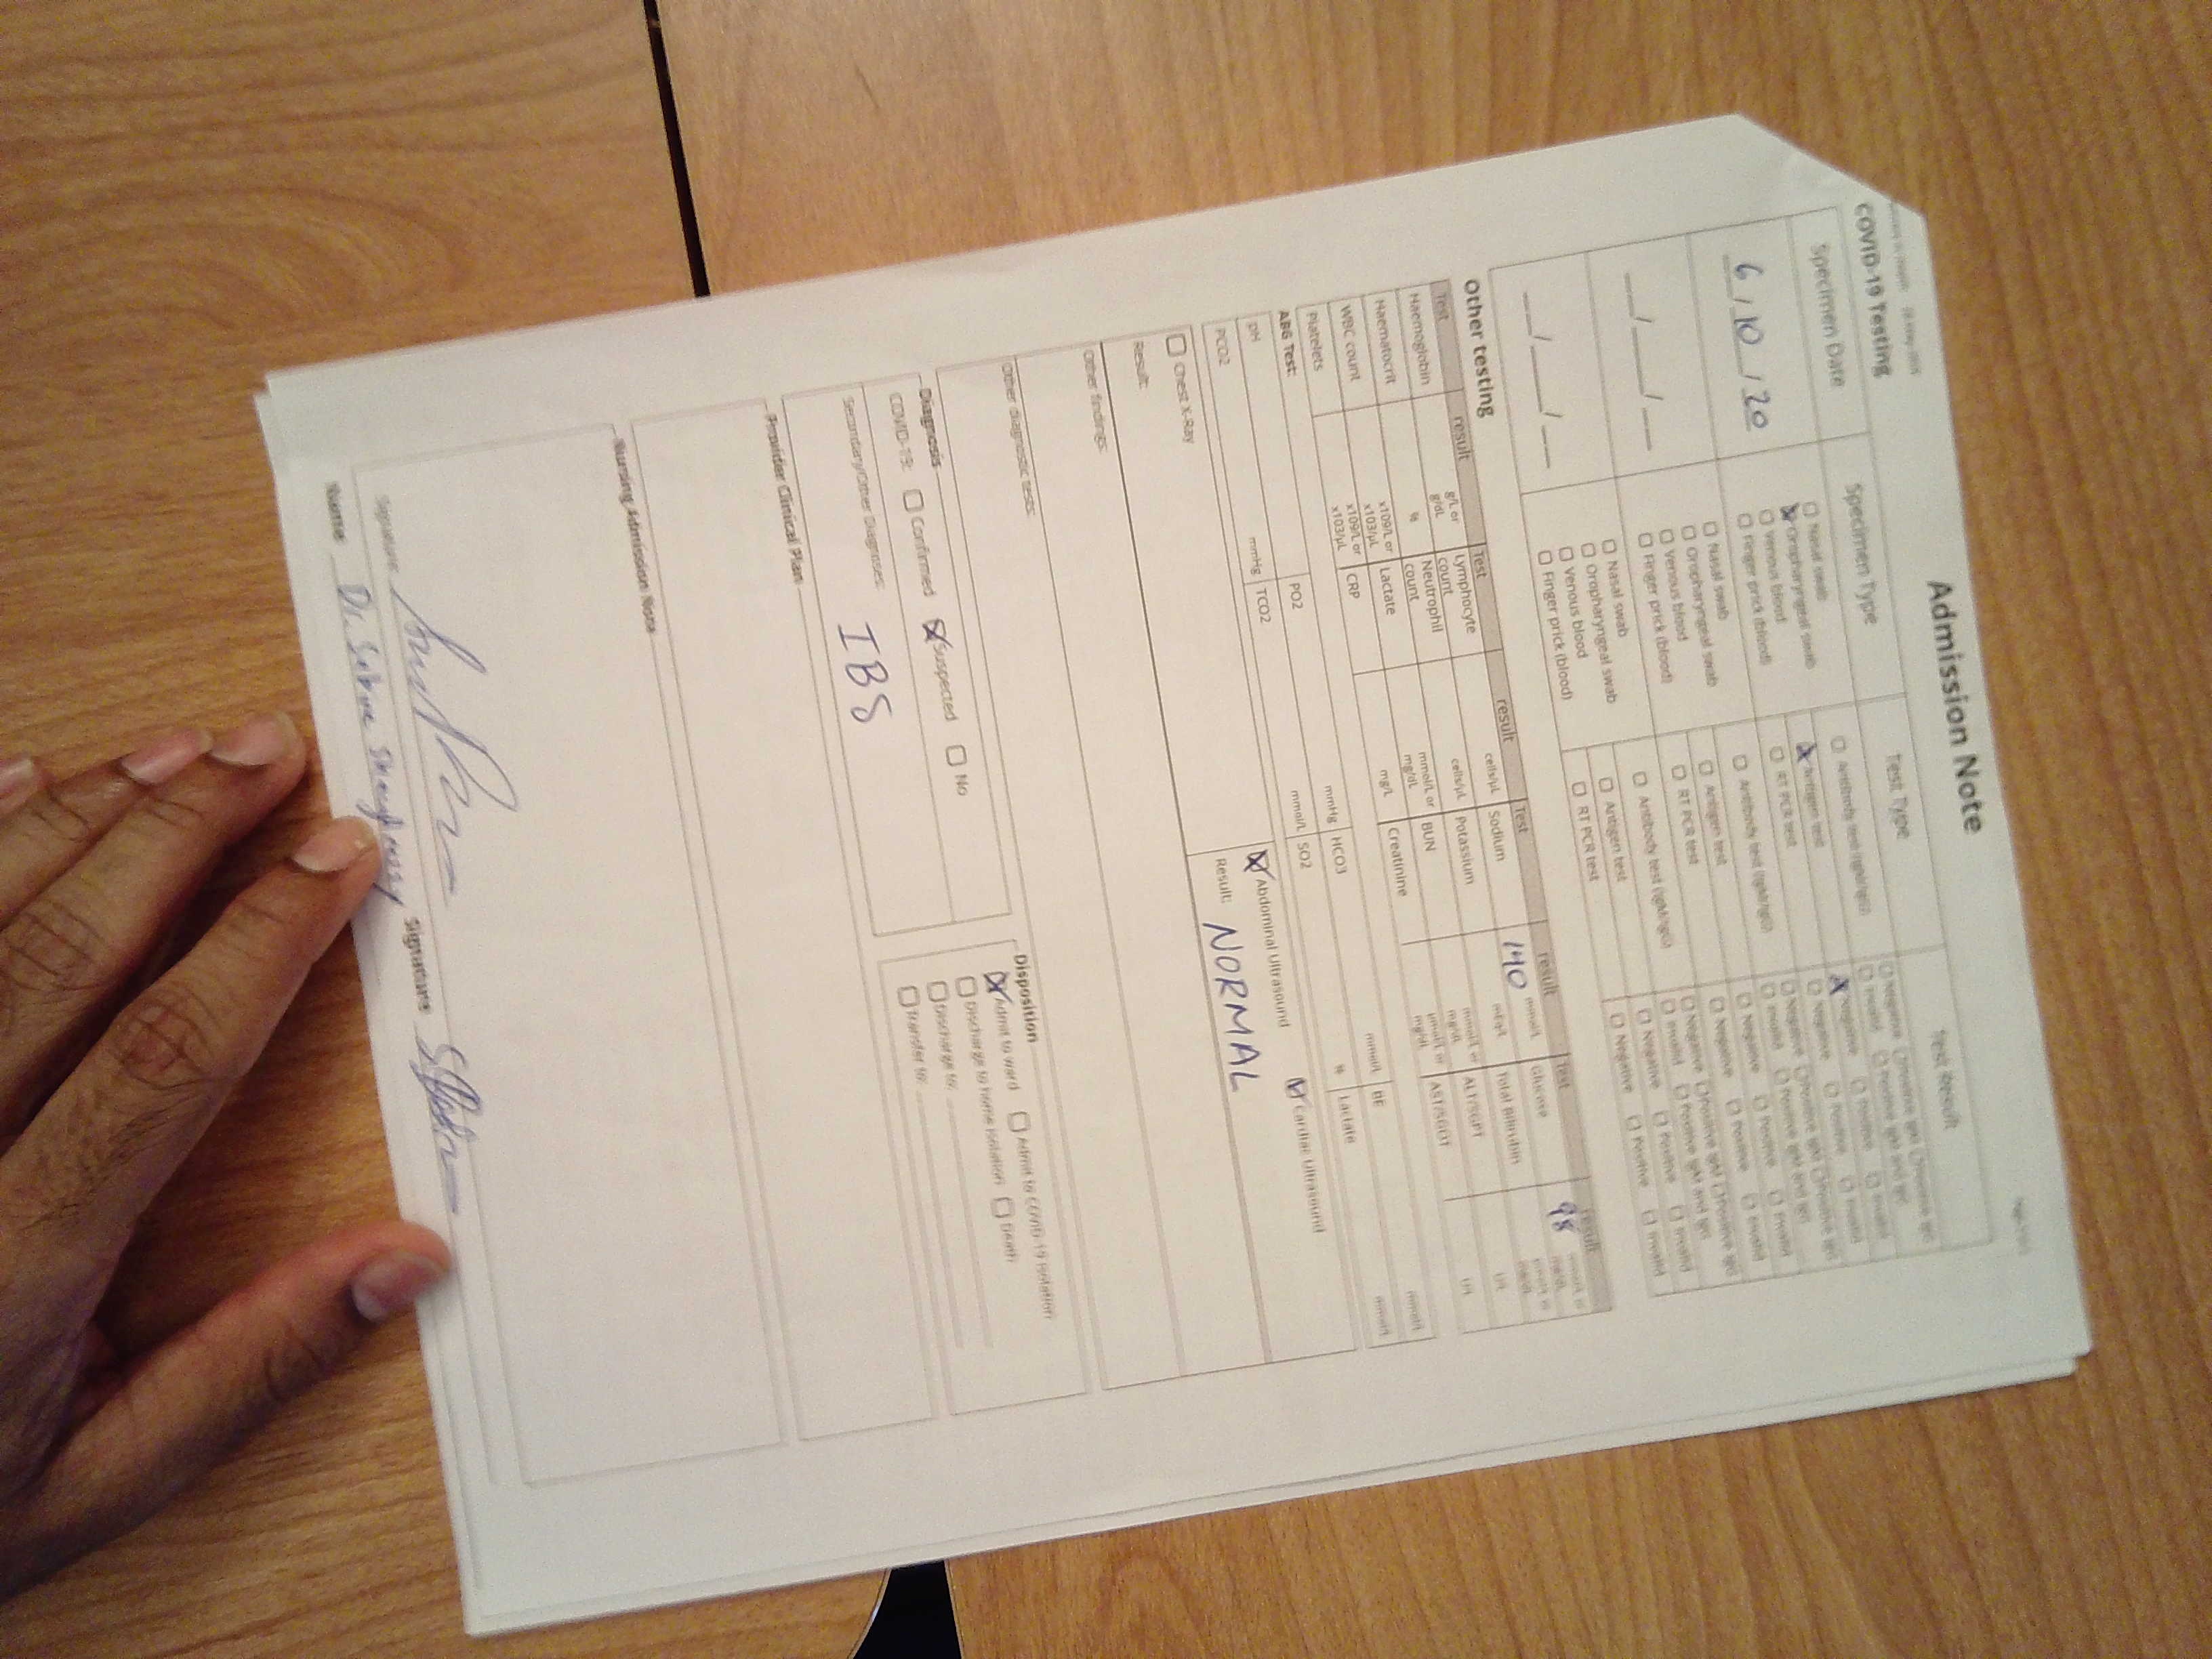 Admission Note
COVID-19 Testing
Specimen Date Specimen Type Test Type Test Result
6/10/20
☐ Nasal swab
☒ Oropharyngeal swab
☐ Venous blood
☐ Finger prick (blood)
☐ Antibody test (IgM/IgG)
☒ Antigen test
☐ RT PCR test
☐ Negative ☐ Positive IgM ☐ Positive IgG
☐ Invalid ☐ Positive IgM and IgG
☒ Negative ☐ Positive ☐ Invalid
☐ Negative ☐ Positive ☐ Invalid
__/__/__
☐ Nasal swab
☐ Oropharyngeal swab
☐ Venous blood
☐ Finger prick (blood)
☐ Antibody test (IgM/IgG)
☐ Antigen test
☐ RT PCR test
☐ Negative ☐ Positive IgM ☐ Positive IgG
☐ Invalid ☐ Positive IgM and IgG
☐ Negative ☐ Positive ☐ Invalid
☐ Negative ☐ Positive ☐ Invalid
__/__/__
☐ Nasal swab
☐ Oropharyngeal swab
☐ Venous blood
☐ Finger prick (blood)
☐ Antibody test (IgM/IgG)
☐ Antigen test
☐ RT PCR test
☐ Negative ☐ Positive IgM ☐ Positive IgG
☐ Invalid ☐ Positive IgM and IgG
☐ Negative ☐ Positive ☐ Invalid
☐ Negative ☐ Positive ☐ Invalid
Other testing
Test result Test result Test result Test result
Haemoglobin g/L or g/dL Lymphocyte count cells/µL Sodium 140 mmol/L mEq/L Glucose 98
Haematocrit % Neutrophil count cells/µL Potassium mmol/L or mg/dL Total Bilirubin
WBC count x109/L or x103/µL Lactate mmol/L or mg/dL BUN µmol/L or mg/dL ALT/SGPT U/L
Platelets x109/L or x103/µL CRP mg/L Creatinine AST/SGOT U/L
ABG Test:
pH PO2 mmHg HCO3 mmol/L BE mmol/L
PCO2 mmHg TCO2 mmol/L SO2 % Lactate mmol/L
☐ Chest X-Ray ☒ Abdominal Ultrasound ☑ Cardiac Ultrasound
Result: Result: NORMAL
Other findings:
Other diagnostic tests:
Diagnosis
COVID-19: ☐ Confirmed ☒ Suspected ☐ No
Secondary/Other Diagnoses:
IBS
Disposition
☒ Admit to ward ☐ Admit to COVID-19 isolation
☐ Discharge to home isolation ☐ Death
☐ Discharge to:
☐ Transfer to:
Provider Clinical Plan
Nursing Admission Note
Signature
Name Dr. Signature